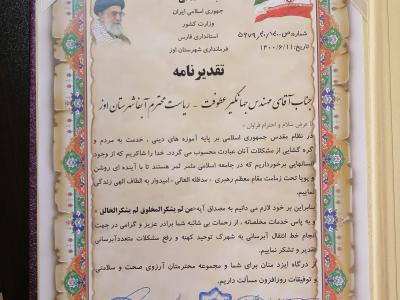 جمهوری اسلامی ایران
وزارت کشور
استانداری فارس
فرمانداری شهرستان اوز
تاریخ: ۱۴۰۰/۶/۱۱
تقدیرنامه
جناب آقای مهندس جهانگیر عطوفت - ریاست محترم آبفا شهرستان اوز
با عرض سلام و احترام فراوان
در نظام مقدس جمهوری اسلامی بر پایه آموزه های دینی ، خدمت به مردم و
گره گشایی از مشکلات آنان عبادت محسوب می گردد. خدا را شاکریم که از وجود
انسانهایی برخورداریم که در جامعه اسلامی مثمر ثمر هستند تا با آینده ای روشن
و پویا تحت زعامت مقام معظم رهبری ، مدظله العالی ، امیدوار به الطاف الهی زندگی
نماییم.
بنابراین بر خود لازم می دانیم به مصداق آیه «من لم یشکر المخلوق لم یشکر الخالق »
و به پاس خدمات مخلصانه ، از زحمات بی شائبه شما برادر عزیز و گرامی در جهت
انجام خط انتقال آبرسانی به شهرک توحید کهنه و رفع مشکلات متعدد آبرسانی
تقدیر و تشکر نماییم.
از درگاه ایزد منان برای شما و مجموعه محترمتان آرزوی صحت و سلامتی
و توفیقات روزافزون مسألت داریم.